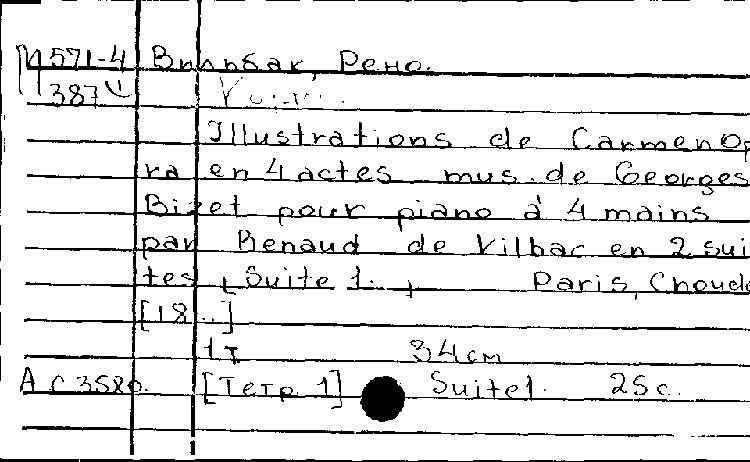 М571-4 Вильбак, Рено.
387
Illustrations de Carmen Op
ra en 4 actes mus. de Georges
Bizet pour piano à 4 mains
par Renaud de Vilbac en 2 sui
tes, Suite 1. Paris, Choude
[18..]
1т 34 cm
А С3580. [Тетр 1] Suite 1. 25c.